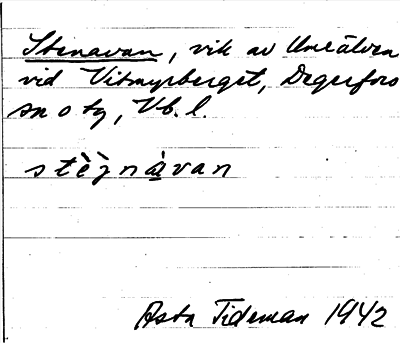 Stenavan, vik av Umeälven
vid Vitmyrberget, Degerfors
sn o tg, Vb. l.
stè̱nàvan
Asta Tideman 1942